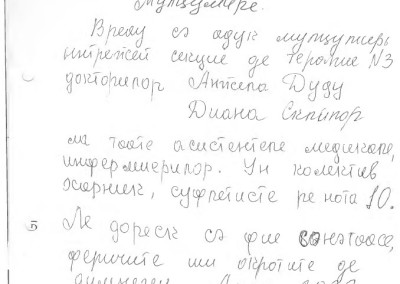 Мулцумире.
Вреау сэ адук мулцумирь
ынтрежей секцие де терапие N3
докторилор Анжела Дуду
Диана Склипор
ла тоате асистентеле медикале,
инфермиерилор. Ун колектив
харник, суфлетисте ре нота 10.
5
Ле дореск сэ фие сэнэтоасе,
феричите ши окротите де